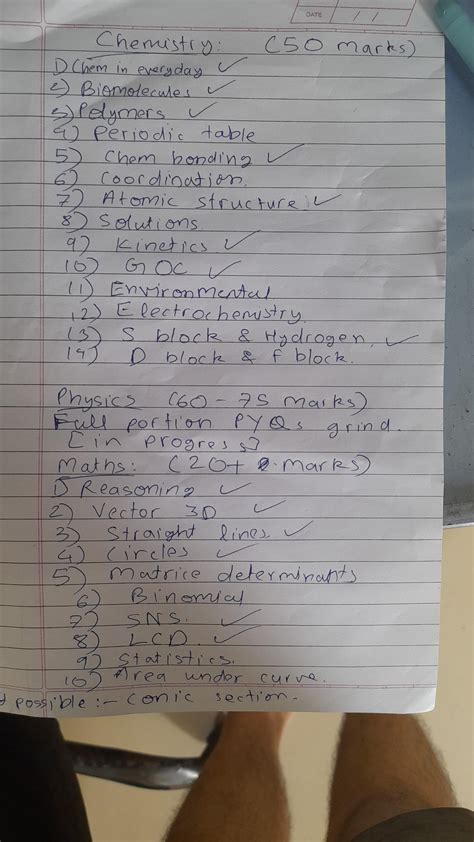 DATE / /
Chemistry: (50 marks)
1) Chem in everyday ✓
2) Biomolecules ✓
3) Polymers ✓
4) Periodic table
5) Chem bonding ✓
6) Coordination.
7) Atomic structure. ✓
8) Solutions
9) Kinetics ✓
10) GOC ✓
11) Environmental
12) Electrochemistry
13) S block & Hydrogen. ✓
14) D block & f block.
Physics (60 - 75 marks)
Full portion PYQs grind.
[in progress]
Maths: (20+ marks)
1) Reasoning ✓
2) Vector 3D ✓
3) Straight lines ✓
4) Circles ✓
5) Matrice determinants
6) Binomial
7) SNS. ✓
8) LCD. ✓
9) Statistics.
10) Area under curve.
possible :- conic section.